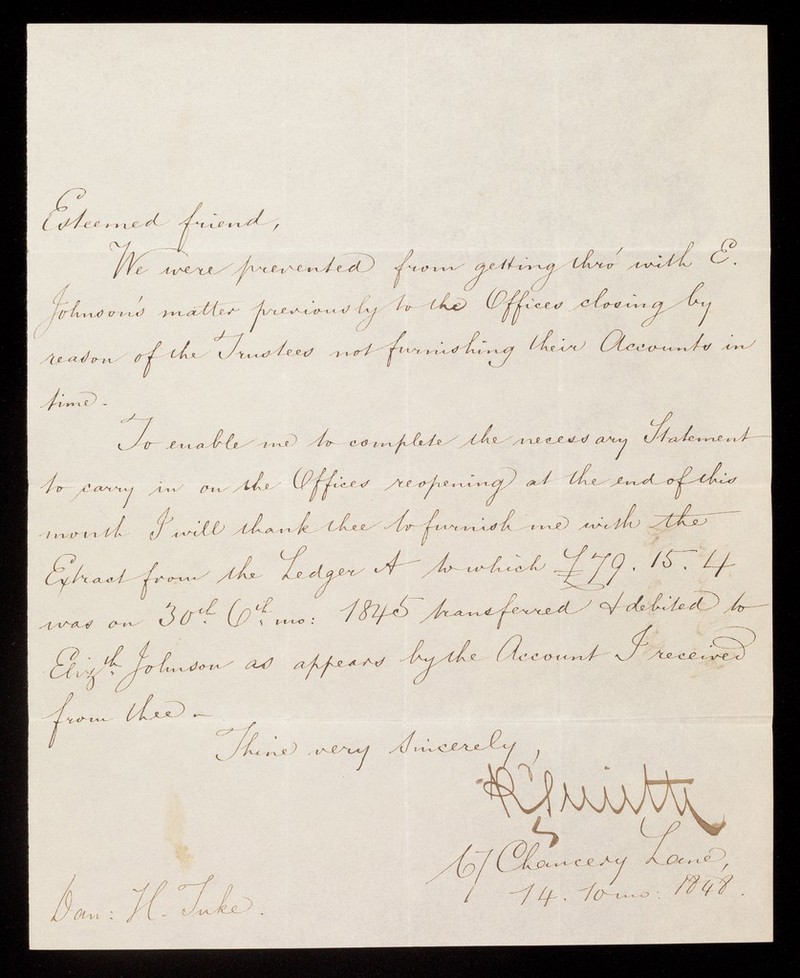 Esteemed friend,
We were prevented from getting thro' with E.
Johnson's matter previously to the Offices closing by
reason of the Trustees not furnishing their Accounts in
time -
To enable me to complete the necessary Statement
to carry in on the Offices reopening at the end of this
month I will thank thee to furnish me with the
Extract from the Ledger A to which £79. 15. 4
was on 30th. 6th. mo: 1845 transferred & debited to
Elizth. Johnson as appears by the Account I received
from thee -
Thine very Sincerely,
67 Chancery Lane,
14. 10 mo: 1848.
Dan: H. Tuke.